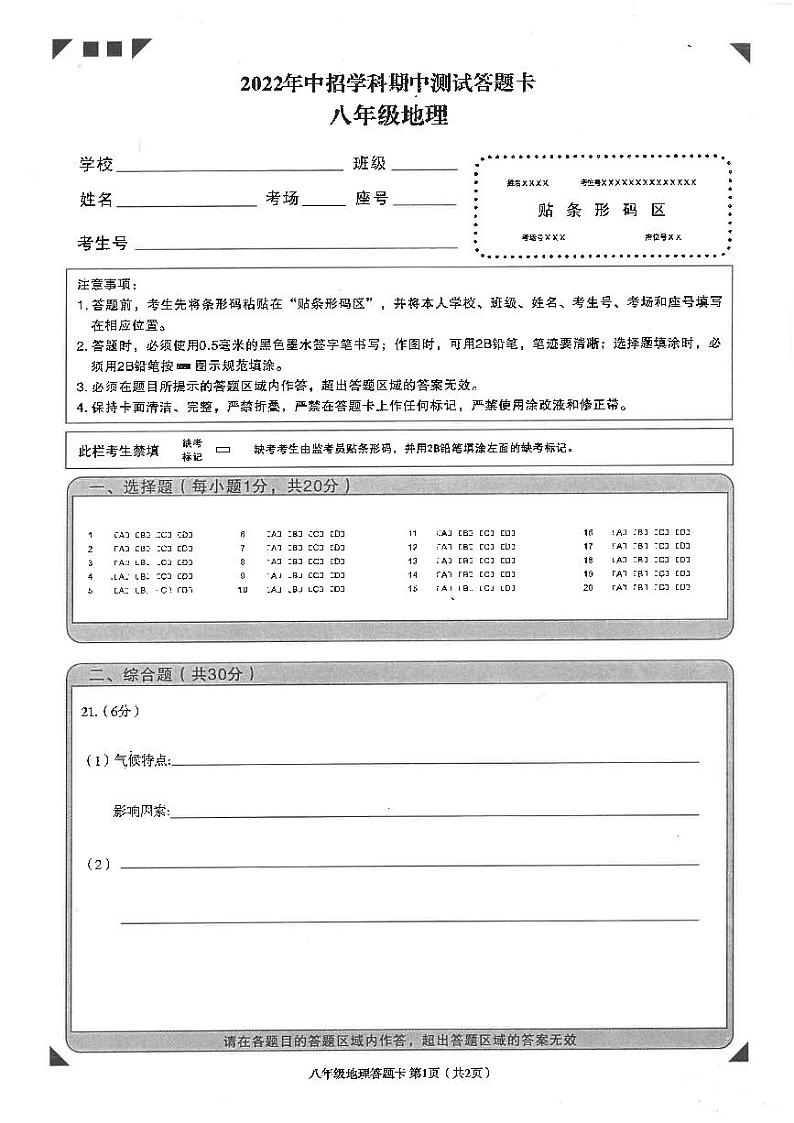 2022年中招学科期中测试答题卡
八年级地理
学校 班级
姓名 考场 座号
考生号
姓名XXXX 考生号XXXXXXXXXXXXXX
贴 条 形 码 区
考场号XXX 座位号XX
注意事项:
1.答题前，考生先将条形码粘贴在“贴条形码区”，并将本人学校、班级、姓名、考生号、考场和座号填写
在相应位置。
2.答题时，必须使用0.5毫米的黑色墨水签字笔书写；作图时，可用2B铅笔，笔迹要清晰；选择题填涂时，必
须用2B铅笔按 图示规范填涂。
3.必须在题目所提示的答题区域内作答，超出答题区域的答案无效。
4.保持卡面清洁、完整，严禁折叠，严禁在答题卡上作任何标记，严禁使用涂改液和修正带。
此栏考生禁填 缺考标记 缺考考生由监考员贴条形码，并用2B铅笔填涂左面的缺考标记。
一、选择题（每小题1分，共20分）
1 [A] [B] [C] [D] 6 [A] [B] [C] [D] 11 [A] [B] [C] [D] 16 [A] [B] [C] [D]
2 [A] [B] [C] [D] 7 [A] [B] [C] [D] 12 [A] [B] [C] [D] 17 [A] [B] [C] [D]
3 [A] [B] [C] [D] 8 [A] [B] [C] [D] 13 [A] [B] [C] [D] 18 [A] [B] [C] [D]
4 [A] [B] [C] [D] 9 [A] [B] [C] [D] 14 [A] [B] [C] [D] 19 [A] [B] [C] [D]
5 [A] [B] [C] [D] 10 [A] [B] [C] [D] 15 [A] [B] [C] [D] 20 [A] [B] [C] [D]
二、综合题（共30分）
21.（6分）
（1）气候特点:
影响因素:
（2）
请在各题目的答题区域内作答，超出答题区域的答案无效
八年级地理答题卡 第1页（共2页）